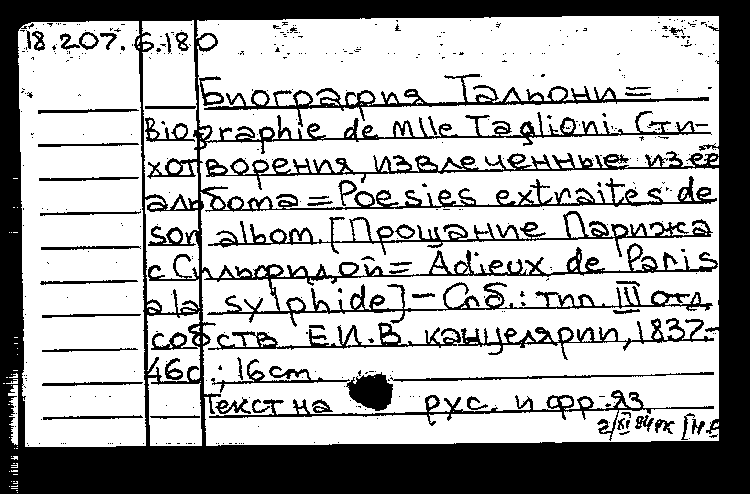 18.207.6.180
Биография Тальони =
Biographie de Mlle Taglioni. Сти-
хотворения, извлеченные из ее
альбома = Poesies extraites de
son album. [Прощание Парижа
с Сильфидой = Adieux de Paris
a la sylphide] – Спб.: тип. III отд.
собств. Е.И.В. канцелярии, 1837.-
46с.; 16cm.
Текст на рус. и фр. яз.